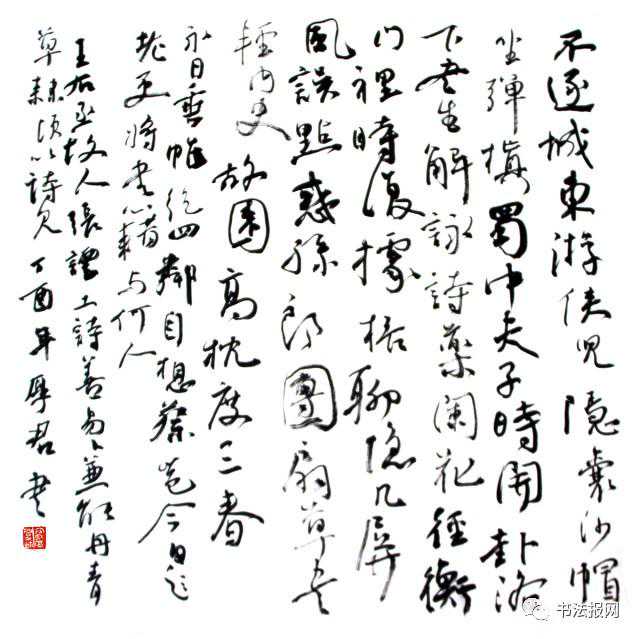 不逐城東游俠兒隱囊沙帽
坐彈棋蜀中夫子時開卦洛
下書生解詠詩藥闌花徑衡
門裡時復據梧聊隱几屏
風誤點惑孫郎團扇草書
輕內史故園高枕度三春
永日垂帷絕四鄰自想蔡邕今已
老更將書籍與何人
王右丞故人張諲工詩善易卜兼能丹青
草隸頃以詩見丁酉年厚君書
书法报网